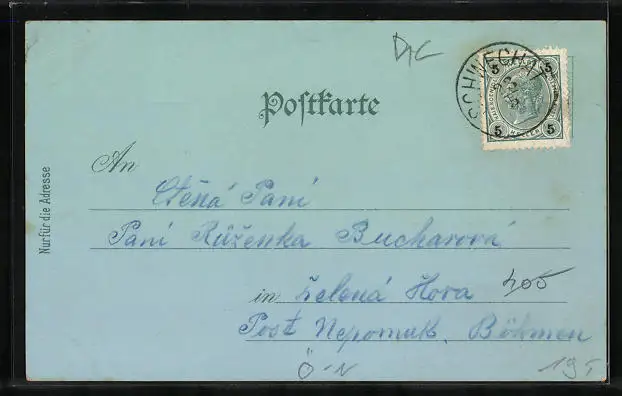 SCHWECHAT
5 5
5 5
Postkarte
Nur für die Adresse
An
Ctěná Paní
Paní Růženka Bucharová
in Zelená Hora
Post Nepomuk. Böhmen
Ö-N